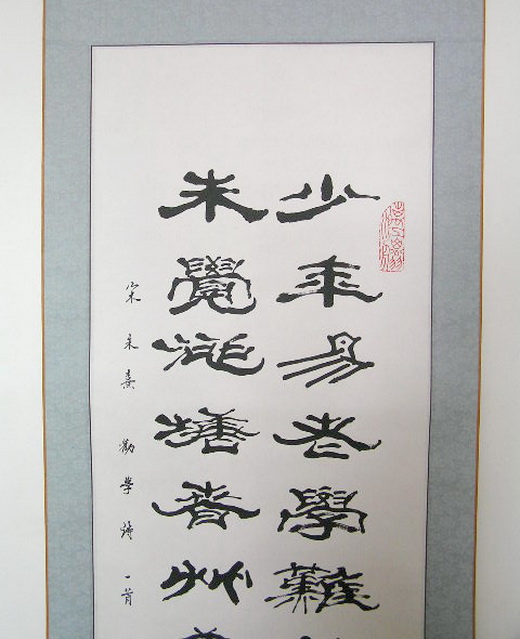 少年易老學難
未覺池塘春艸
宋朱熹勸學詩一首